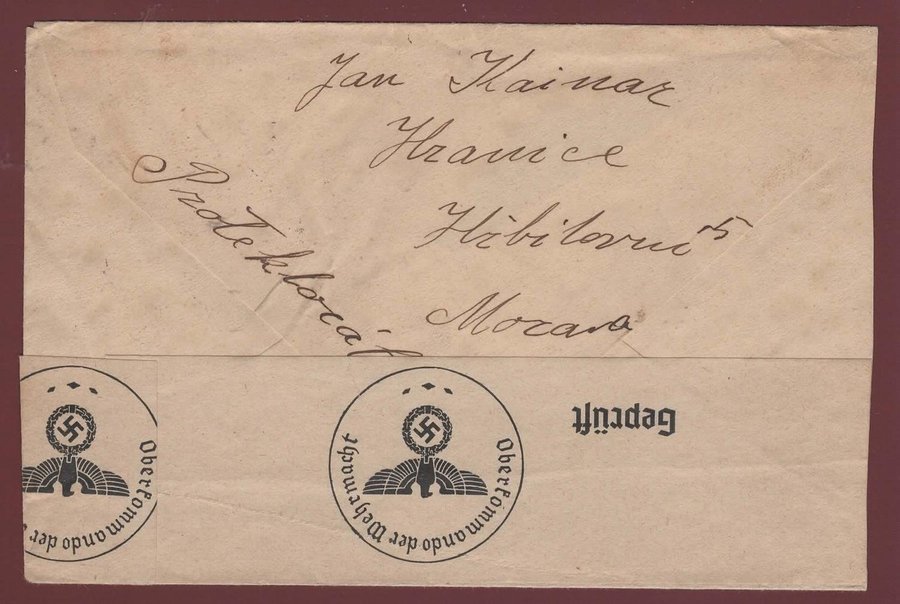 Jan Kainar
Hranice
Hřbitovní 5
Morava
Protektorát
Geprüft
Oberkommando der Wehrmacht
Oberkommando der